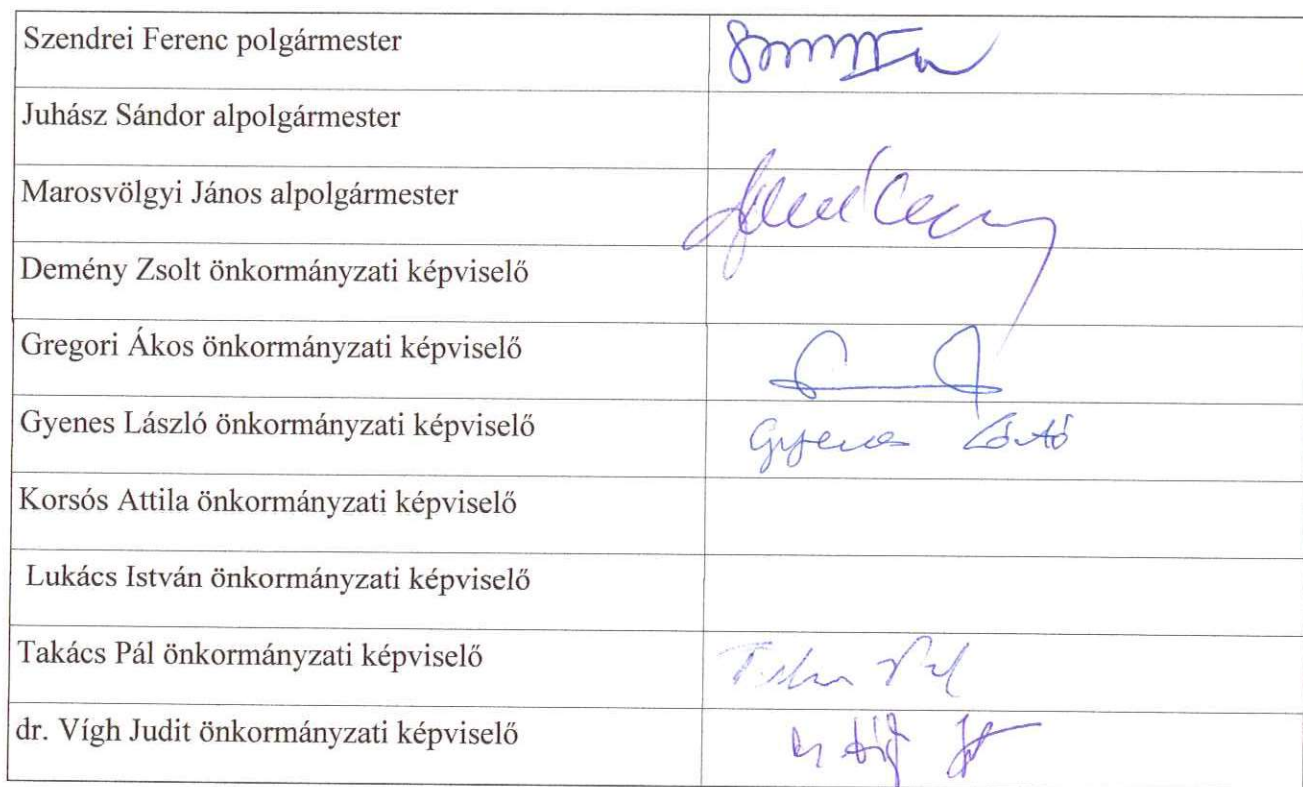 Szendrei Ferenc polgármester
Juhász Sándor alpolgármester
Marosvölgyi János alpolgármester
Demény Zsolt önkormányzati képviselő
Gregori Ákos önkormányzati képviselő
Gyenes László önkormányzati képviselő
Gyenes
Korsós Attila önkormányzati képviselő
Lukács István önkormányzati képviselő
Takács Pál önkormányzati képviselő
dr. Vígh Judit önkormányzati képviselő